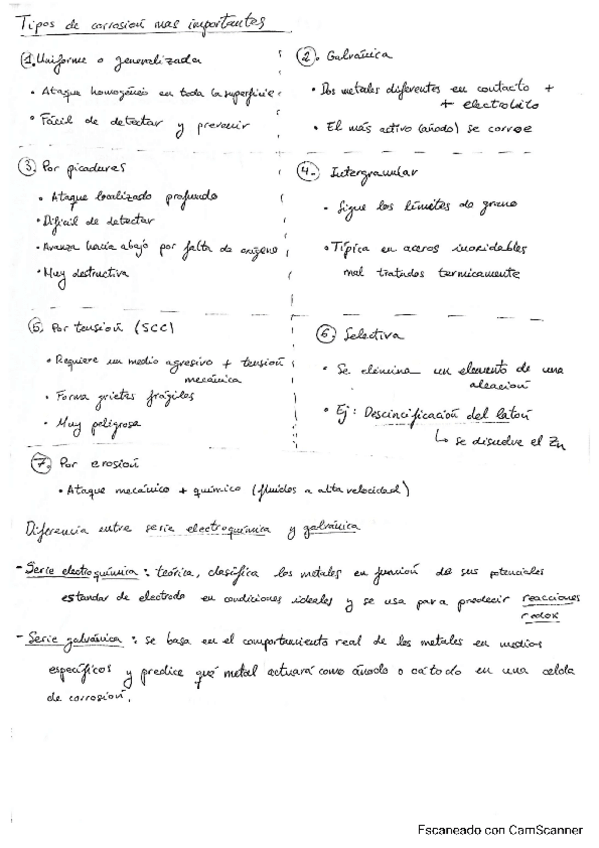 Tipos de corrosión mas importantes
1. Uniforme o generalizada
• Ataque homogéneo en toda la superficie
• Fácil de detectar y prevenir
2. Galvánica
• Dos metales diferentes en contacto +
+ electrolito
• El más activo (ánodo) se corroe
3. Por picaduras
• Ataque localizado profundo
• Difícil de detectar
• Avanza hacia abajo por falta de oxígeno
• Muy destructiva
4. Intergranular
• Sigue los límites de grano
• Típica en aceros inoxidables
mal tratados termicamente
5. Por tensión (SCC)
• Requiere un medio agresivo + tensión
mecánica
• Forma grietas frágiles
• Muy peligrosa
6. Selectiva
• Se elimina un elemento de una
aleación
• Ej: Descincificación del latón
↳ se disuelve el Zn
7. Por erosión
• Ataque mecánico + químico (fluidos a alta velocidad)
Diferencia entre serie electroquímica y galvánica
- Serie electroquímica: teórica, clasifica los metales en función de sus potenciales
estandar de electrodo en condiciones ideales y se usa para predecir reacciones
redox
- Serie galvánica: se basa en el comportamiento real de los metales en medios
específicos y predice qué metal actuará como ánodo o cátodo en una celda
de corrosión.
Escaneado con CamScanner